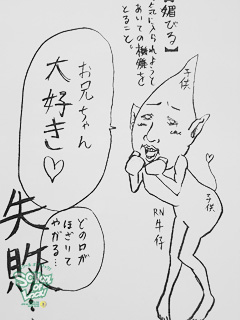 【媚びる】
気に入られようと
あいての機嫌を
とること。
子供
お兄ちゃん
大好き♡
子供
RN
牛仔
どの口が
ほざいて
やがる…
失敗!